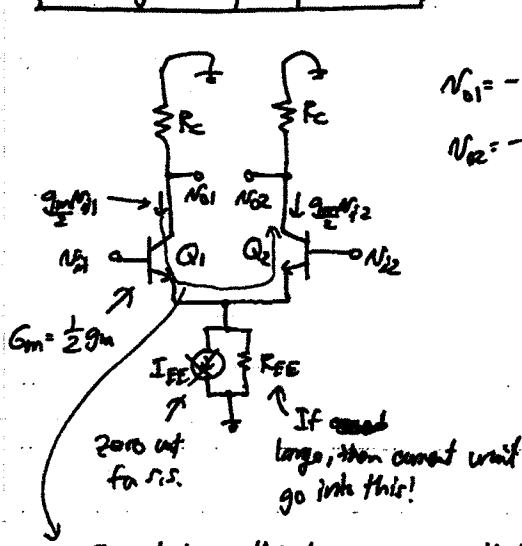 R_C
R_C
v_01 = -
v_02 = -
g_m/2 v_i1
v_01
v_02
g_m/2 v_i2
v_i1
Q_1
Q_2
v_i2
G_m = 1/2 g_m
I_EE
R_EE
Zero out
for s.s.
If
large, then current won't
go into this!